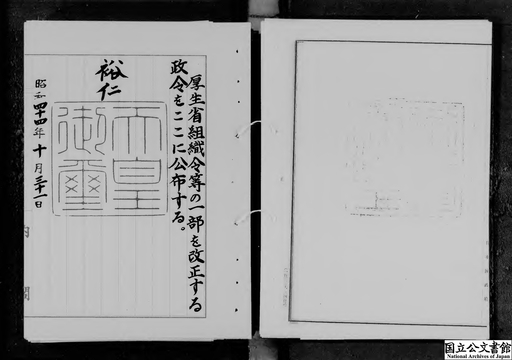 厚生省組織令等の一部を改正する
政令をここに公布する。
裕仁
天皇
御璽
昭和四十四年十月三十一日
内
閣
国立公文書館
National Archives of Japan